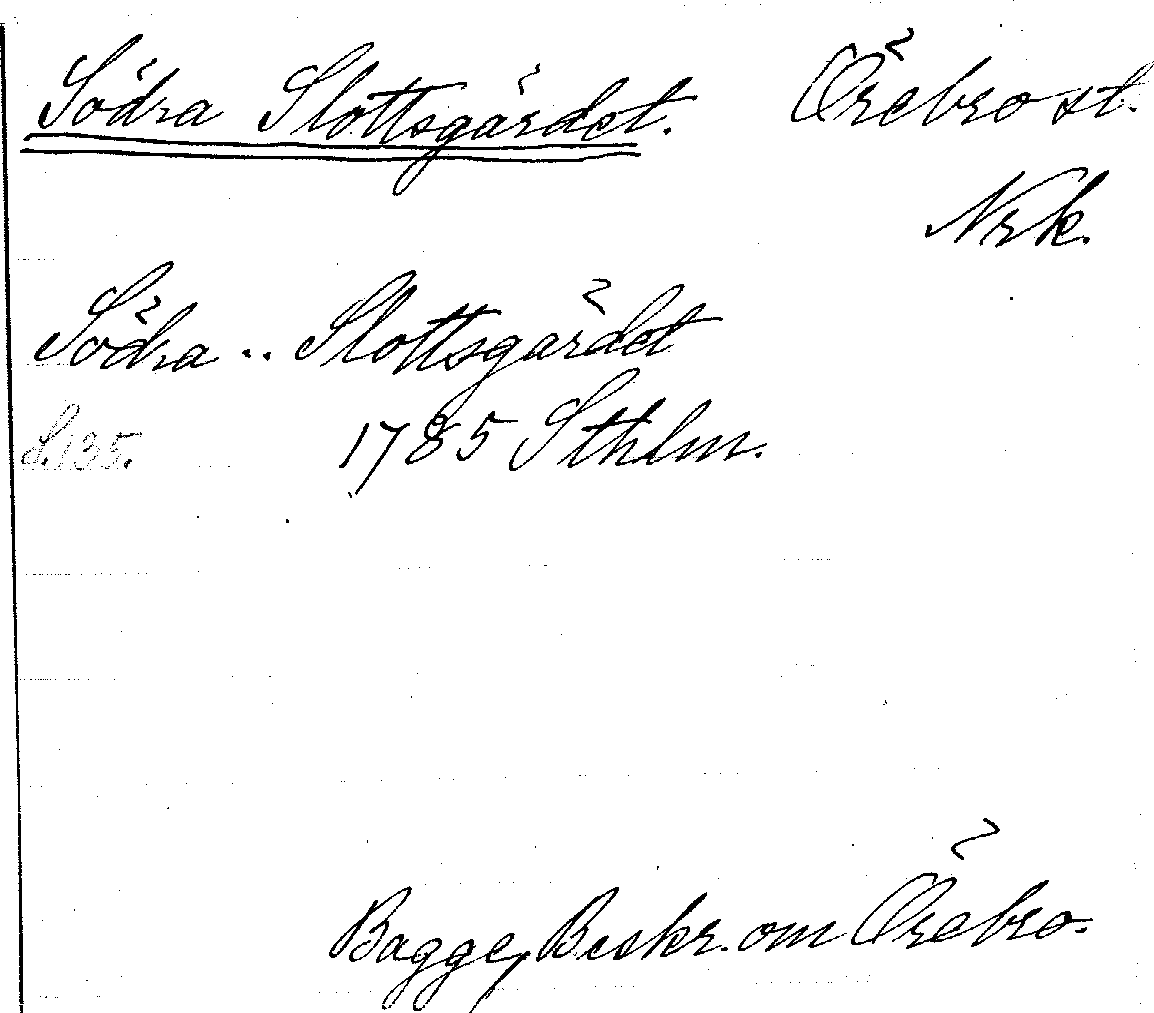 Södra Slottsgärdet. Örebro st.
Nrk.
Södra .. Slottsgärdet
S. 135. 1785 Sthlm.
Bagge, Beskr. om Örebro.